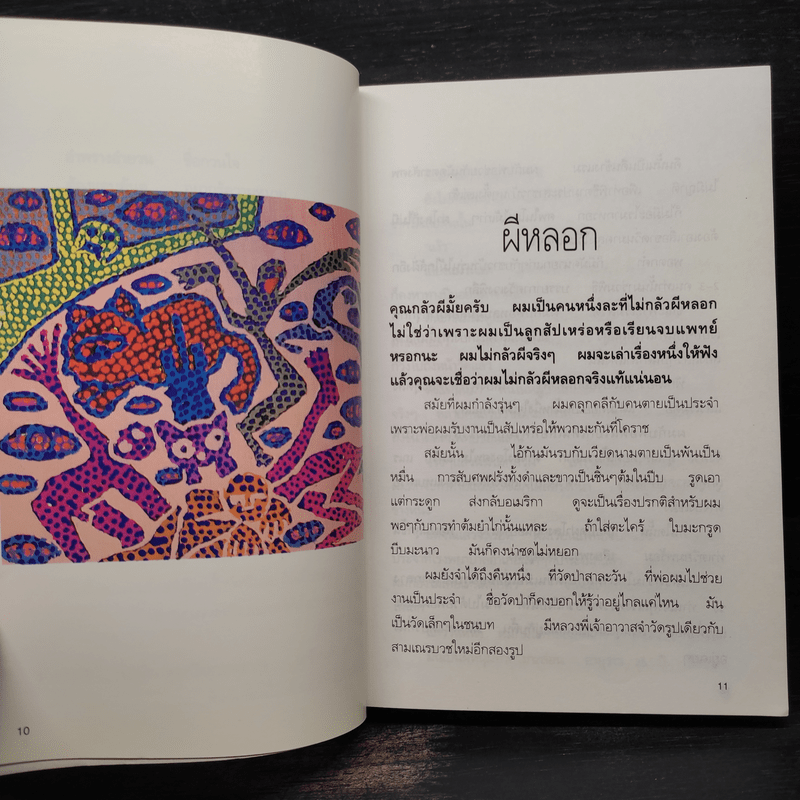 10
ผีหลอก
คุณกลัวผีมั้ยครับ ผมเป็นคนหนึ่งละที่ไม่กลัวผีหลอก
ไม่ใช่ว่าเพราะผมเป็นลูกสัปเหร่อหรือเรียนจบแพทย์
หรอกนะ ผมไม่กลัวผีจริงๆ ผมจะเล่าเรื่องหนึ่งให้ฟัง
แล้วคุณจะเชื่อว่าผมไม่กลัวผีหลอกจริงแท้แน่นอน
สมัยที่ผมกำลังรุ่นๆ ผมคลุกคลีกับคนตายเป็นประจำ
เพราะพ่อผมรับงานเป็นสัปเหร่อให้พวกมะกันที่โคราช
สมัยนั้น ไอ้กันมันรบกับเวียดนามตายเป็นพันเป็น
หมื่น การสับศพฝรั่งทั้งดำและขาวเป็นชิ้นๆต้มในปีบ รูดเอา
แต่กระดูก ส่งกลับอเมริกา ดูจะเป็นเรื่องปรกติสำหรับผม
พอๆกับการทำต้มยำไก่นั้นแหละ ถ้าใส่ตะไคร้ ใบมะกรูด
บีบมะนาว มันก็คงน่าซดไม่หยอก
ผมยังจำได้ถึงคืนหนึ่ง ที่วัดป่าสาละวัน ที่พ่อผมไปช่วย
งานเป็นประจำ ชื่อวัดป่าก็คงบอกให้รู้ว่าอยู่ไกลแค่ไหน มัน
เป็นวัดเล็กๆในชนบท มีหลวงพี่เจ้าอาวาสจำวัดรูปเดียวกับ
สามเณรบวชใหม่อีกสองรูป
11